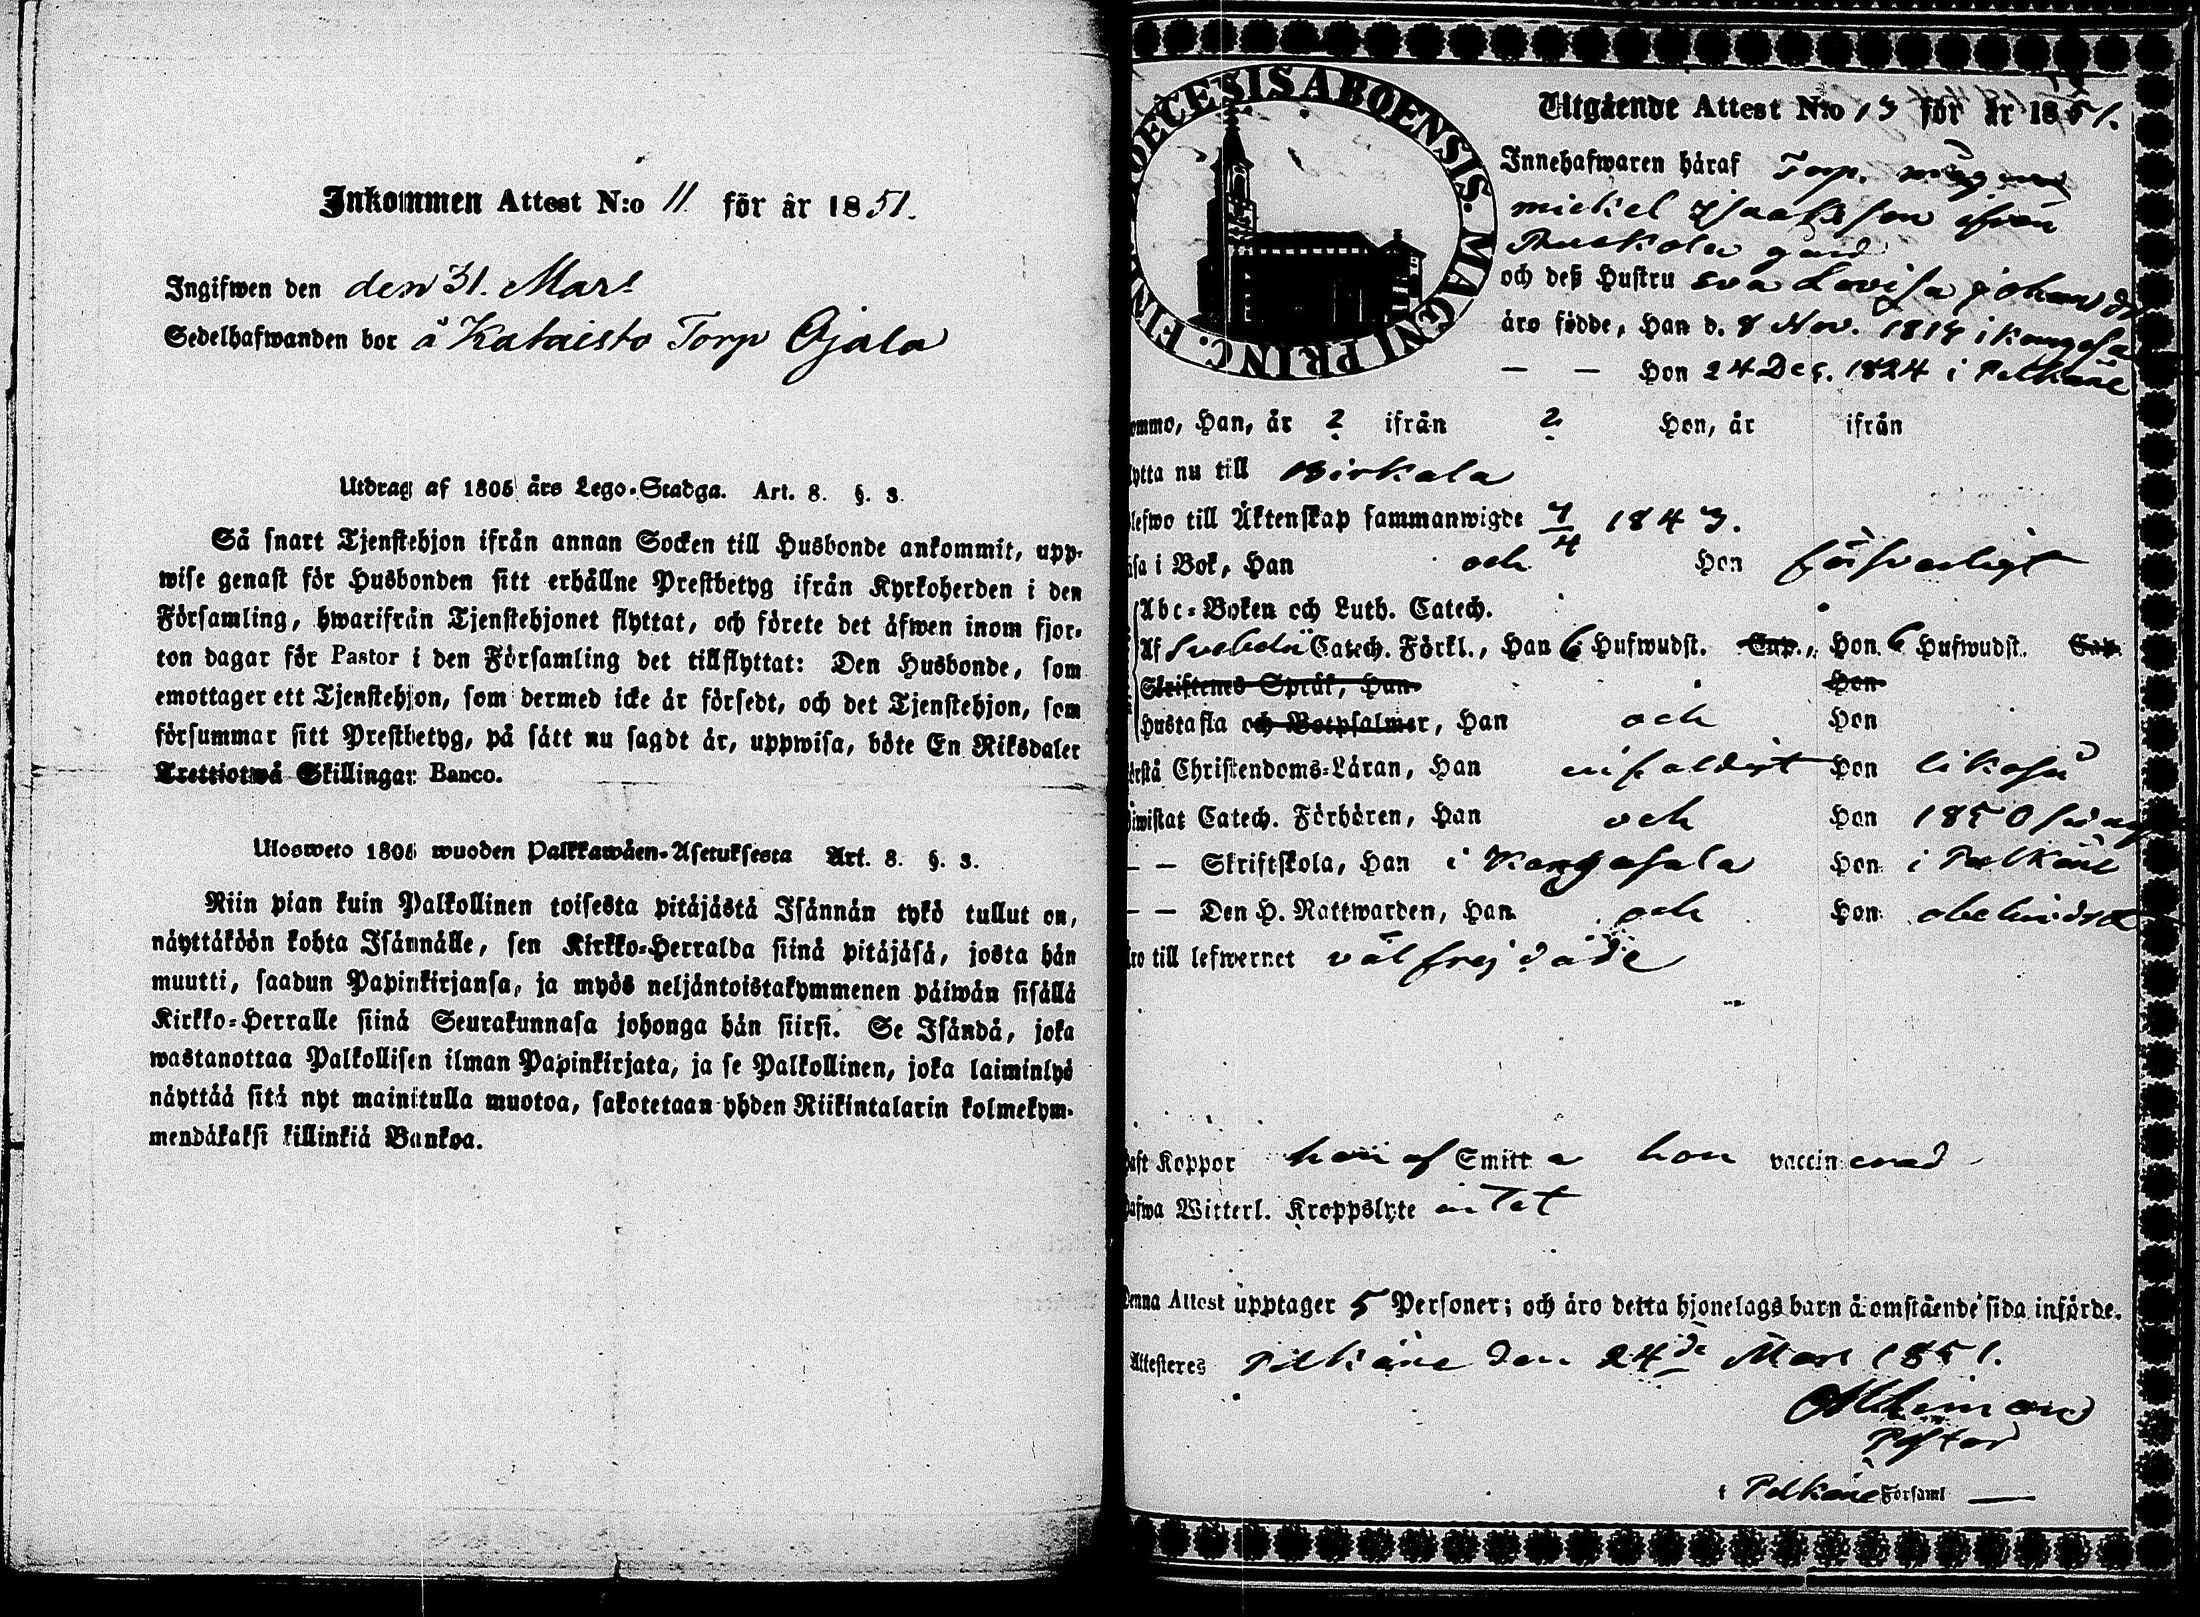 Inkommen Attest N:o 11. för år 1851.
Ingifwen den den 31. Mars
Sedelhafwanden bor å Kataisto Torp Ojala
Utdrag af 1805 års Lego-Stadga. Art. 8. §. 3.
Så snart Tjenstehjon ifrån annan Socken till Husbonde ankommit, upp-
wise genast för Husbonden sitt erhållne Prestbetyg ifrån Kyrkoherden i den
Församling, hwarifrån Tjenstehjonet flyttat, och förete det åfwen inom fjor-
ton dagar för Pastor i den Församling det tillflyttat: Den Husbonde, som
emottager ett Tjenstehjon, som dermed icke är försedt, och det Tjenstehjon, som
försummar sitt Prestbetyg, på sätt nu sagdt är, uppwisa, böte En Riksdaler
Trettiotwå Skillingar Banco.
Ulosweto 1805 wuoden Palkkawäen-Asetuksesta Art. 8. §. 3.
Niin pian kuin Palkollinen toisesta pitäjästä Isännän tykö tullut on,
näyttäköön kohta Isännälle, sen Kirkko-Herralda siinä pitäjäsä, josta hän
muutti, saadun Papinkirjansa, ja myös neljäntoistakymmenen päiwän sisällä
Kirkko-Herralle siinä Seurakunnasa johonga hän siirsi. Se Isändä, joka
wastanottaa Palkollisen ilman Papinkirjata, ja se Palkollinen, joka laiminlyö
näyttää sitä nyt mainitulla muotoa, sakotetaan yhden Riikintalarin kolmekym-
mendäkaksi killinkiä Bankoa.
DIOECESIS ABOENSIS. MAGNI PRINC. FIN
Utgående Attest N:o 13 för år 1851.
Innehafwaren häraf Torp. mågen
mickel Isaksson ifrån
gård
och deß Hustru Eva Lovisa Johansdr
äro födde, Han d. 8 Nov. 1818 i Kangasala
— — Hon 24 Dec. 1824 i Pelkäne
ommo, Han, år 2 ifrån 2 Hon, år ifrån
lytta nu till Birkala
lefwo till Äktenskap sammanwigde 7/4 1843.
äsa i Bok, Han och Hon försvarligt
Abc-Boken och Luth. Catech.
Af Svebelii Catech. Förkl., Han 6 Hufwudst. Cap., Hon 6 Hufwudst. Cap.
Skriftenes Språk, Han Hon
Hustafla och Botpsalmer, Han och Hon
örstå Christendoms-Läran, Han enfaldigt Hon likaså
iwistat Catech. Förhören, Han och Hon 1850
— — Skriftskola, Han i Kangasala Hon i Pelkäne
— — Den H. Nattwarden, Han och Hon obehindrat
äro till lefwernet välfrejdade
haft Koppor han af Smitta hon vaccinerad
hafwa Witterl. Kroppslyte intet
Denna Attest upptager 5 Personer; och äro detta hjonelags barn å omstående sida införde.
Attesteres Pelkäne den 24de Mars 1851.
Pastor
i Pelkäne Församl